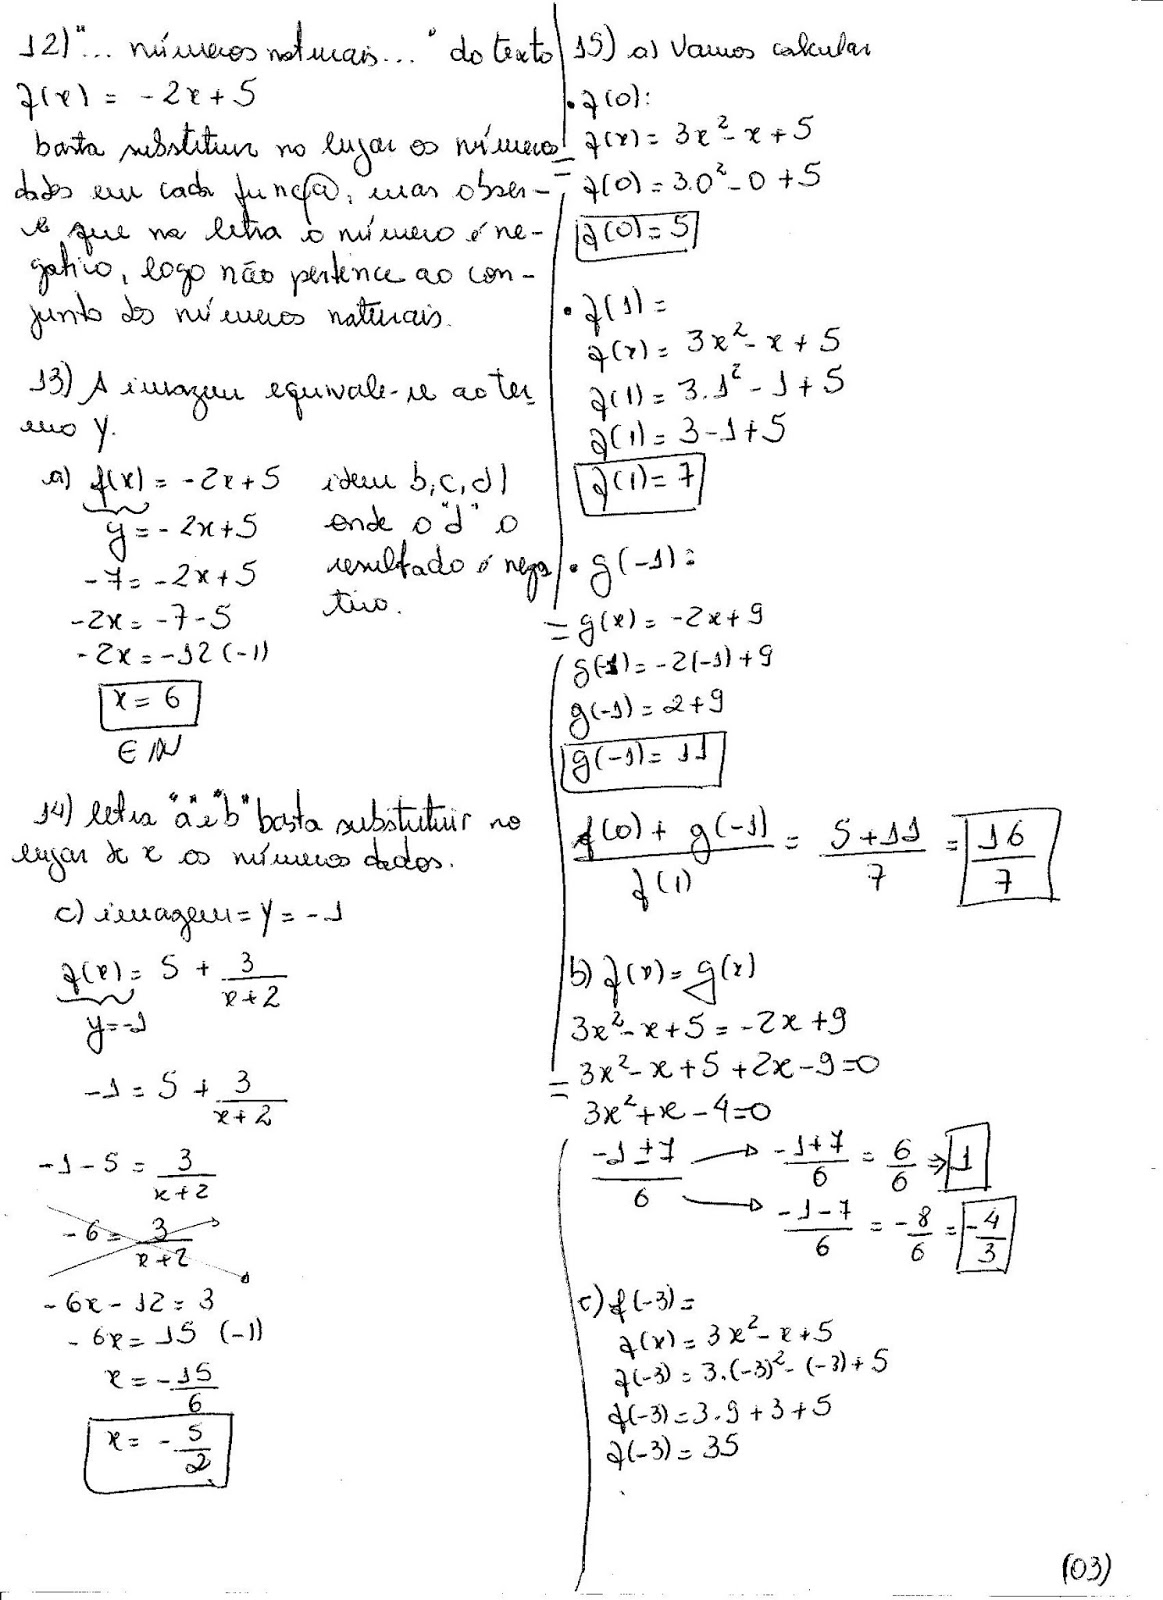 12) "... números naturais..." do texto
f(x) = -2x + 5
basta substituir no lugar os números
dados em cada função, mas obser-
e que na letra o número é ne-
gativo, logo não pertence ao con-
junto dos números naturais.
13) A imagem equivale-se ao ter
mo y.
a) f(x) = -2x + 5
y = -2x + 5
-7 = -2x + 5
-2x = -7 - 5
-2x = -12 (-1)
x = 6
∈ IN
idem b, c, d)
onde o "d" o
resultado é nega
tivo.
14) letra "a" e "b" basta substituir no
lugar de x os números dados.
c) imagem = y = -1
f(x) = 5 + 3/(x+2)
y = -1
-1 = 5 + 3/(x+2)
-1 - 5 = 3/(x+2)
-6 = 3/(x+2)
-6x - 12 = 3
-6x = 15 (-1)
x = -15/6
x = -5/2
15) a) Vamos calcular
• f(0):
f(x) = 3x² - x + 5
f(0) = 3.0² - 0 + 5
f(0) = 5
• f(1) =
f(x) = 3x² - x + 5
f(1) = 3.1² - 1 + 5
f(1) = 3 - 1 + 5
f(1) = 7
• g(-1):
g(x) = -2x + 9
g(-1) = -2(-1) + 9
g(-1) = 2 + 9
g(-1) = 11
(f(0) + g(-1))/f(1) = (5 + 11)/7 = 16/7
b) f(x) = g(x)
3x² - x + 5 = -2x + 9
3x² - x + 5 + 2x - 9 = 0
3x² + x - 4 = 0
(-1 ± 7)/6 → (-1 + 7)/6 = 6/6 ⇒ 1
→ (-1 - 7)/6 = -8/6 = -4/3
c) f(-3) =
f(x) = 3x² - x + 5
f(-3) = 3.(-3)² - (-3) + 5
f(-3) = 3.9 + 3 + 5
f(-3) = 35
(03)